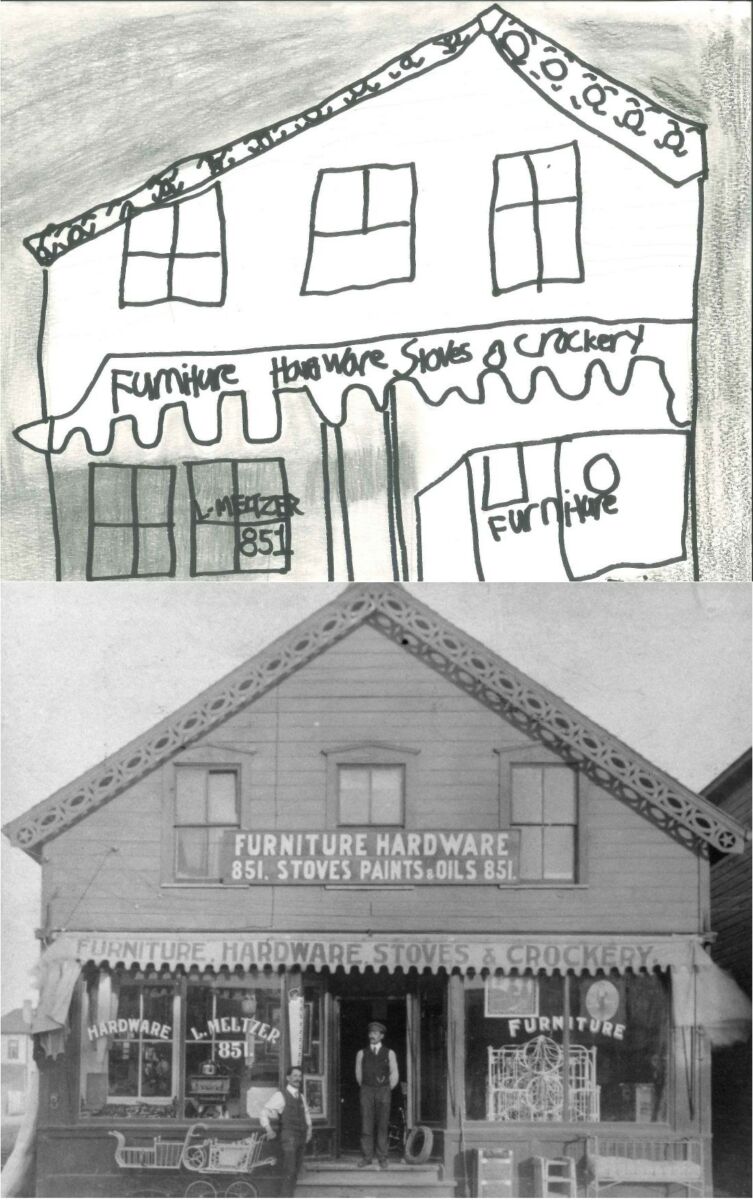 Furniture Hardware Stoves & Crockery
L. MELTZER
851
Furniture
FURNITURE HARDWARE
851. STOVES PAINTS & OILS 851.
FURNITURE, HARDWARE, STOVES & CROCKERY.
HARDWARE
L. MELTZER
851.
FURNITURE